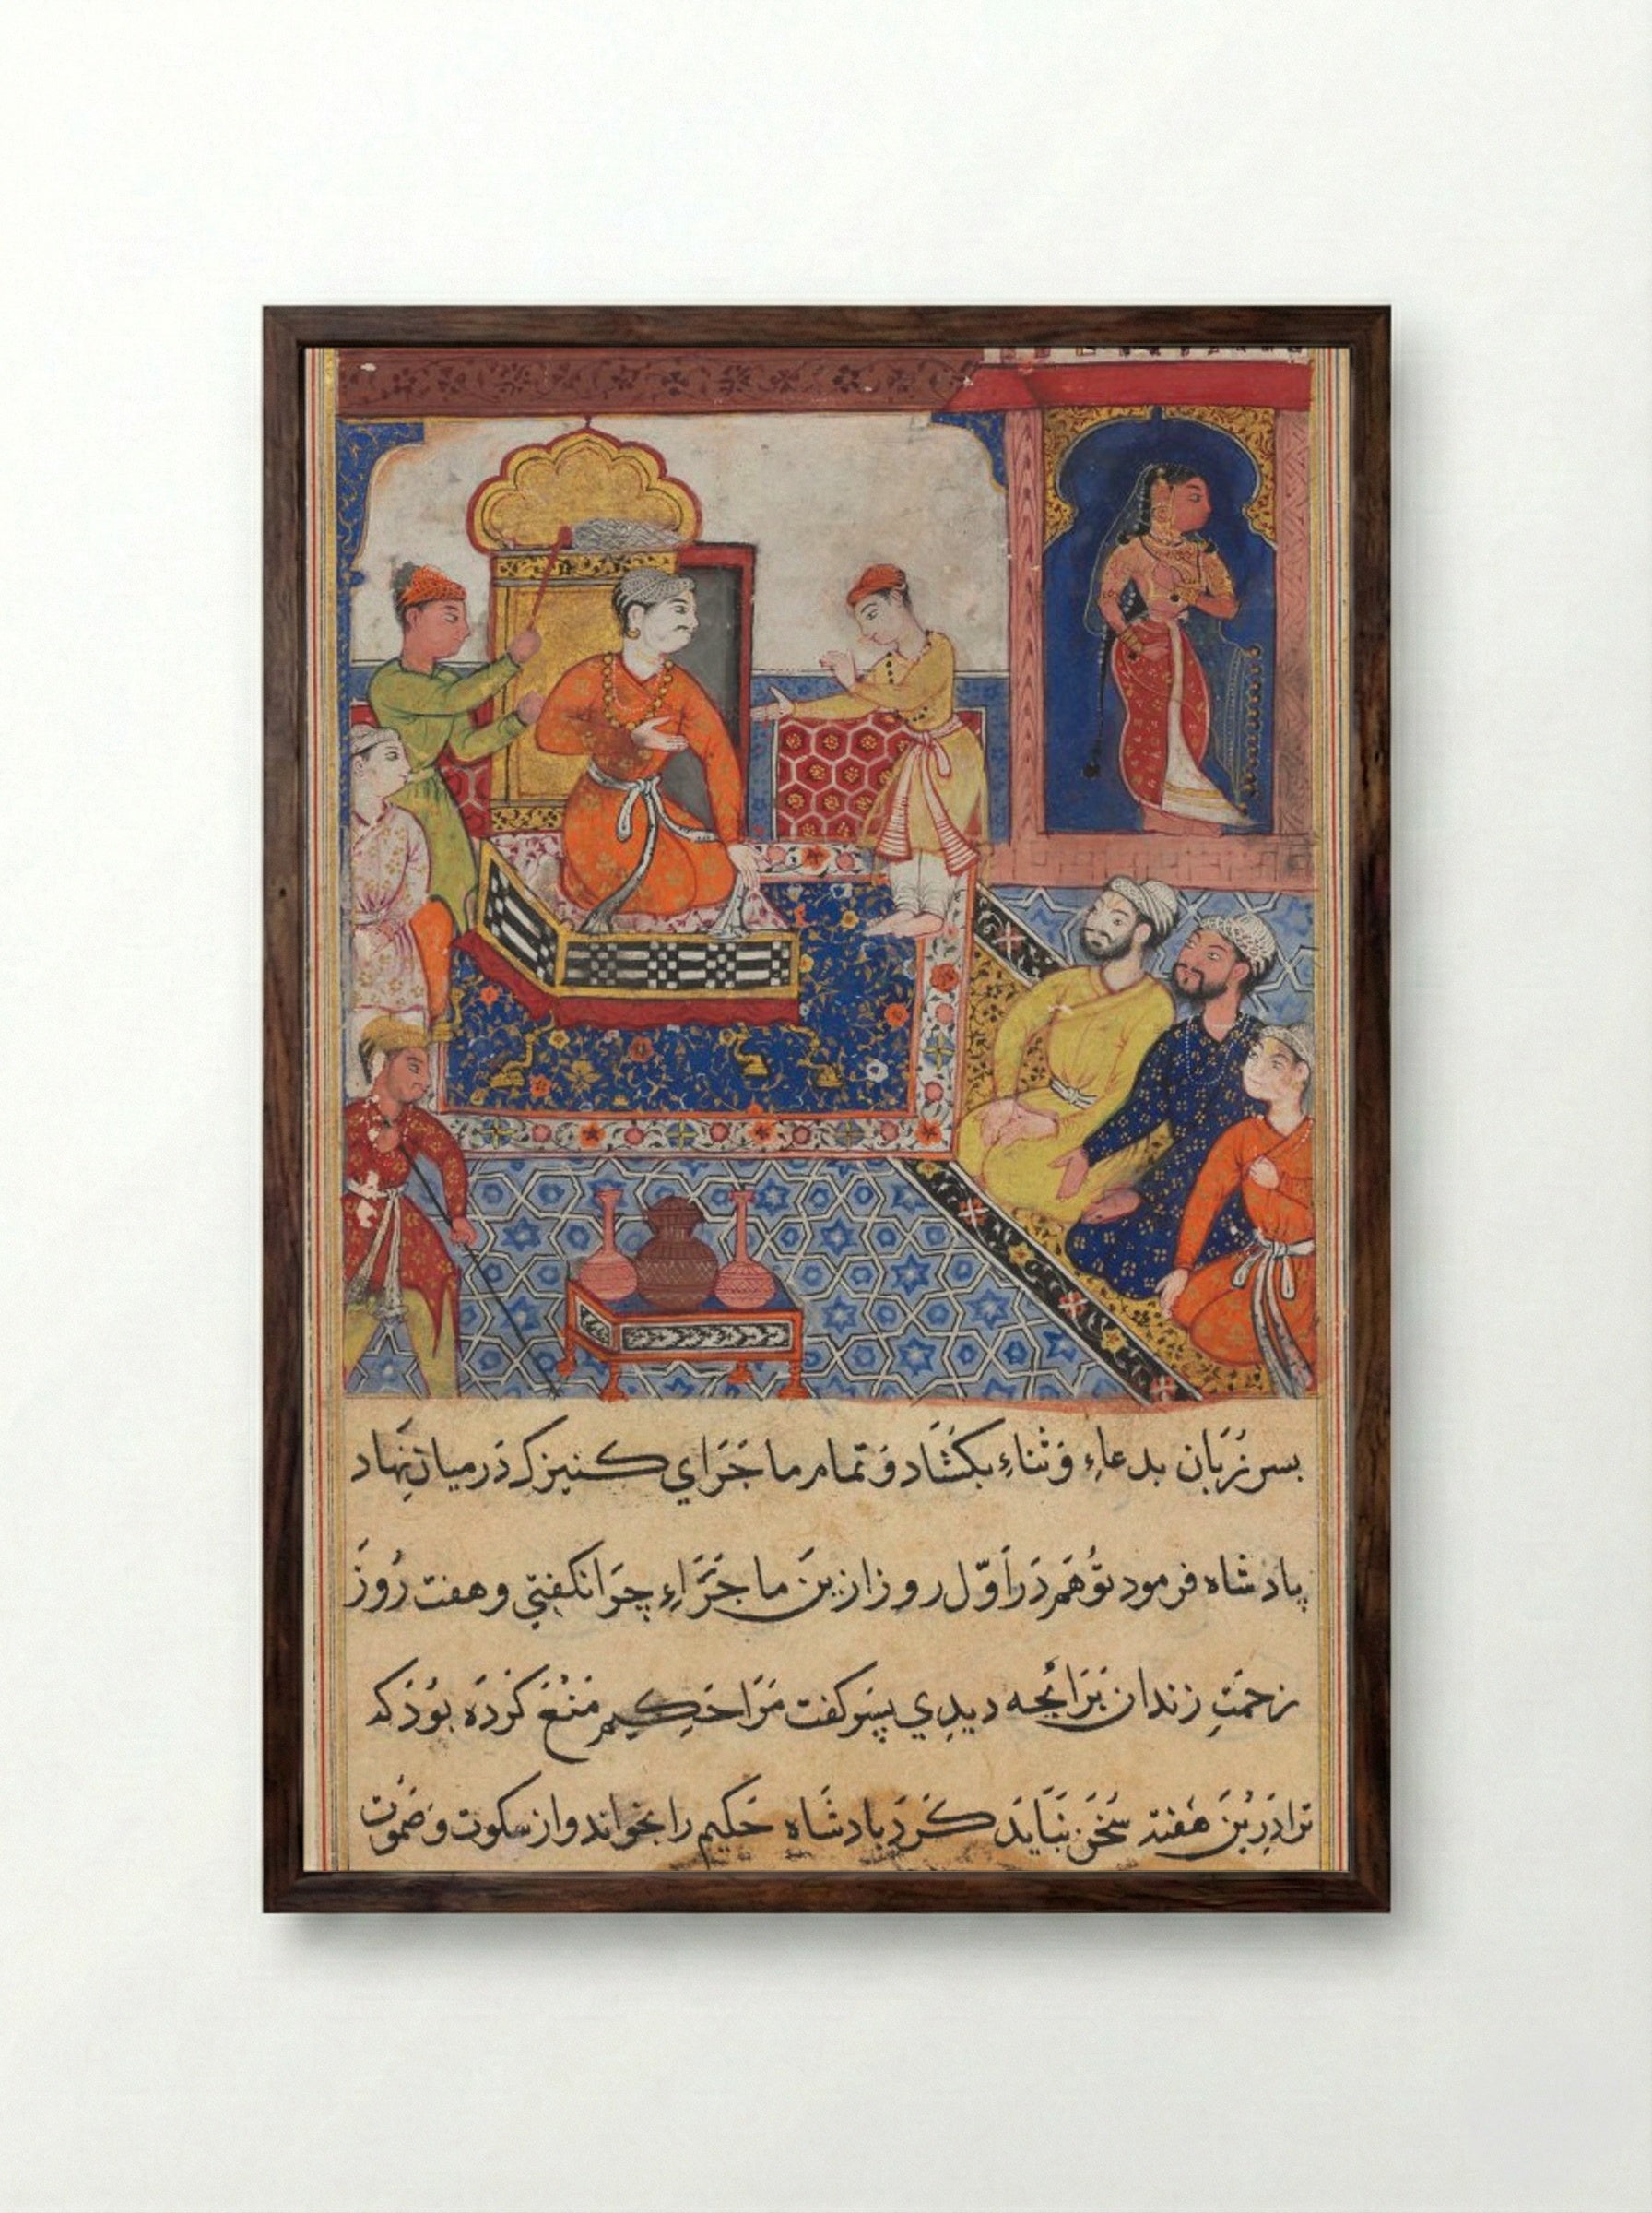 بسر زبان بدعاء و ثناء بکشاد و تمام ماجرای کنیزک در میان نهاد
پادشاه فرمود تو هم در اول روز ازین ماجراء چرا نکفتی و هفت روز
زحمت زندان برائجه دیدی پسر کفت مرا حکیم منع کرده بود که
ترا درین هفته سخن نباید کرد بادشاه حکیم را بخواند و از سکوت و صموت